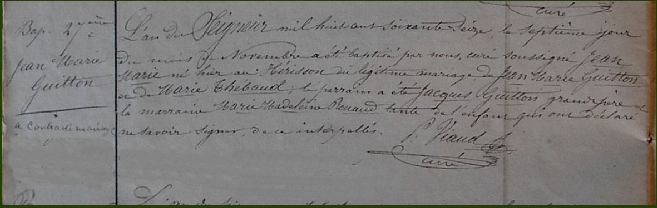 curé
Bap. 27ème
Jean Marie
Guitton
a contracté mariage
L'an du Seigneur mil huit cent soixante seize, le septième jour
du mois de Novembre a été baptisé par nous, curé soussigné Jean
Marie né hier au Hérisson du légitime mariage de Jean Marie Guitton
et de Marie Thebaud; le parrain a été Jacques Guitton grand père et
la marraine Marie Madeleine Renaud tante de l'enfant qui ont déclaré
ne savoir signer, de ce interpellés.
Viaud
curé